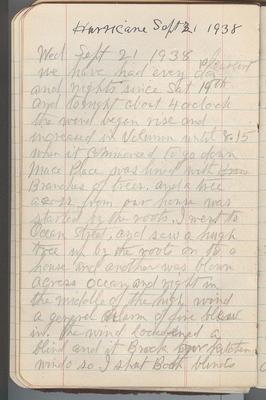 Hurricane Sept 21 1938
Wed Sept 21 1938
we have had every day
and nights since Sat 19th
and tonight about 4 oclock
the wind began rise and
increased in Volumn until 8.15
when it commenced to go down
Place was lined with
Branches of trees, and a tree
across from our house was
started by the roots, I went to
Ocean Street, and saw a hugh
tree up by the roots on to a
house and another was blown
across Ocean and right in
the middle of the high wind
a general alarm of fire blew
in. the wind loosened a
blind and it Brock our Kitchen
windo so I shut Both blinds